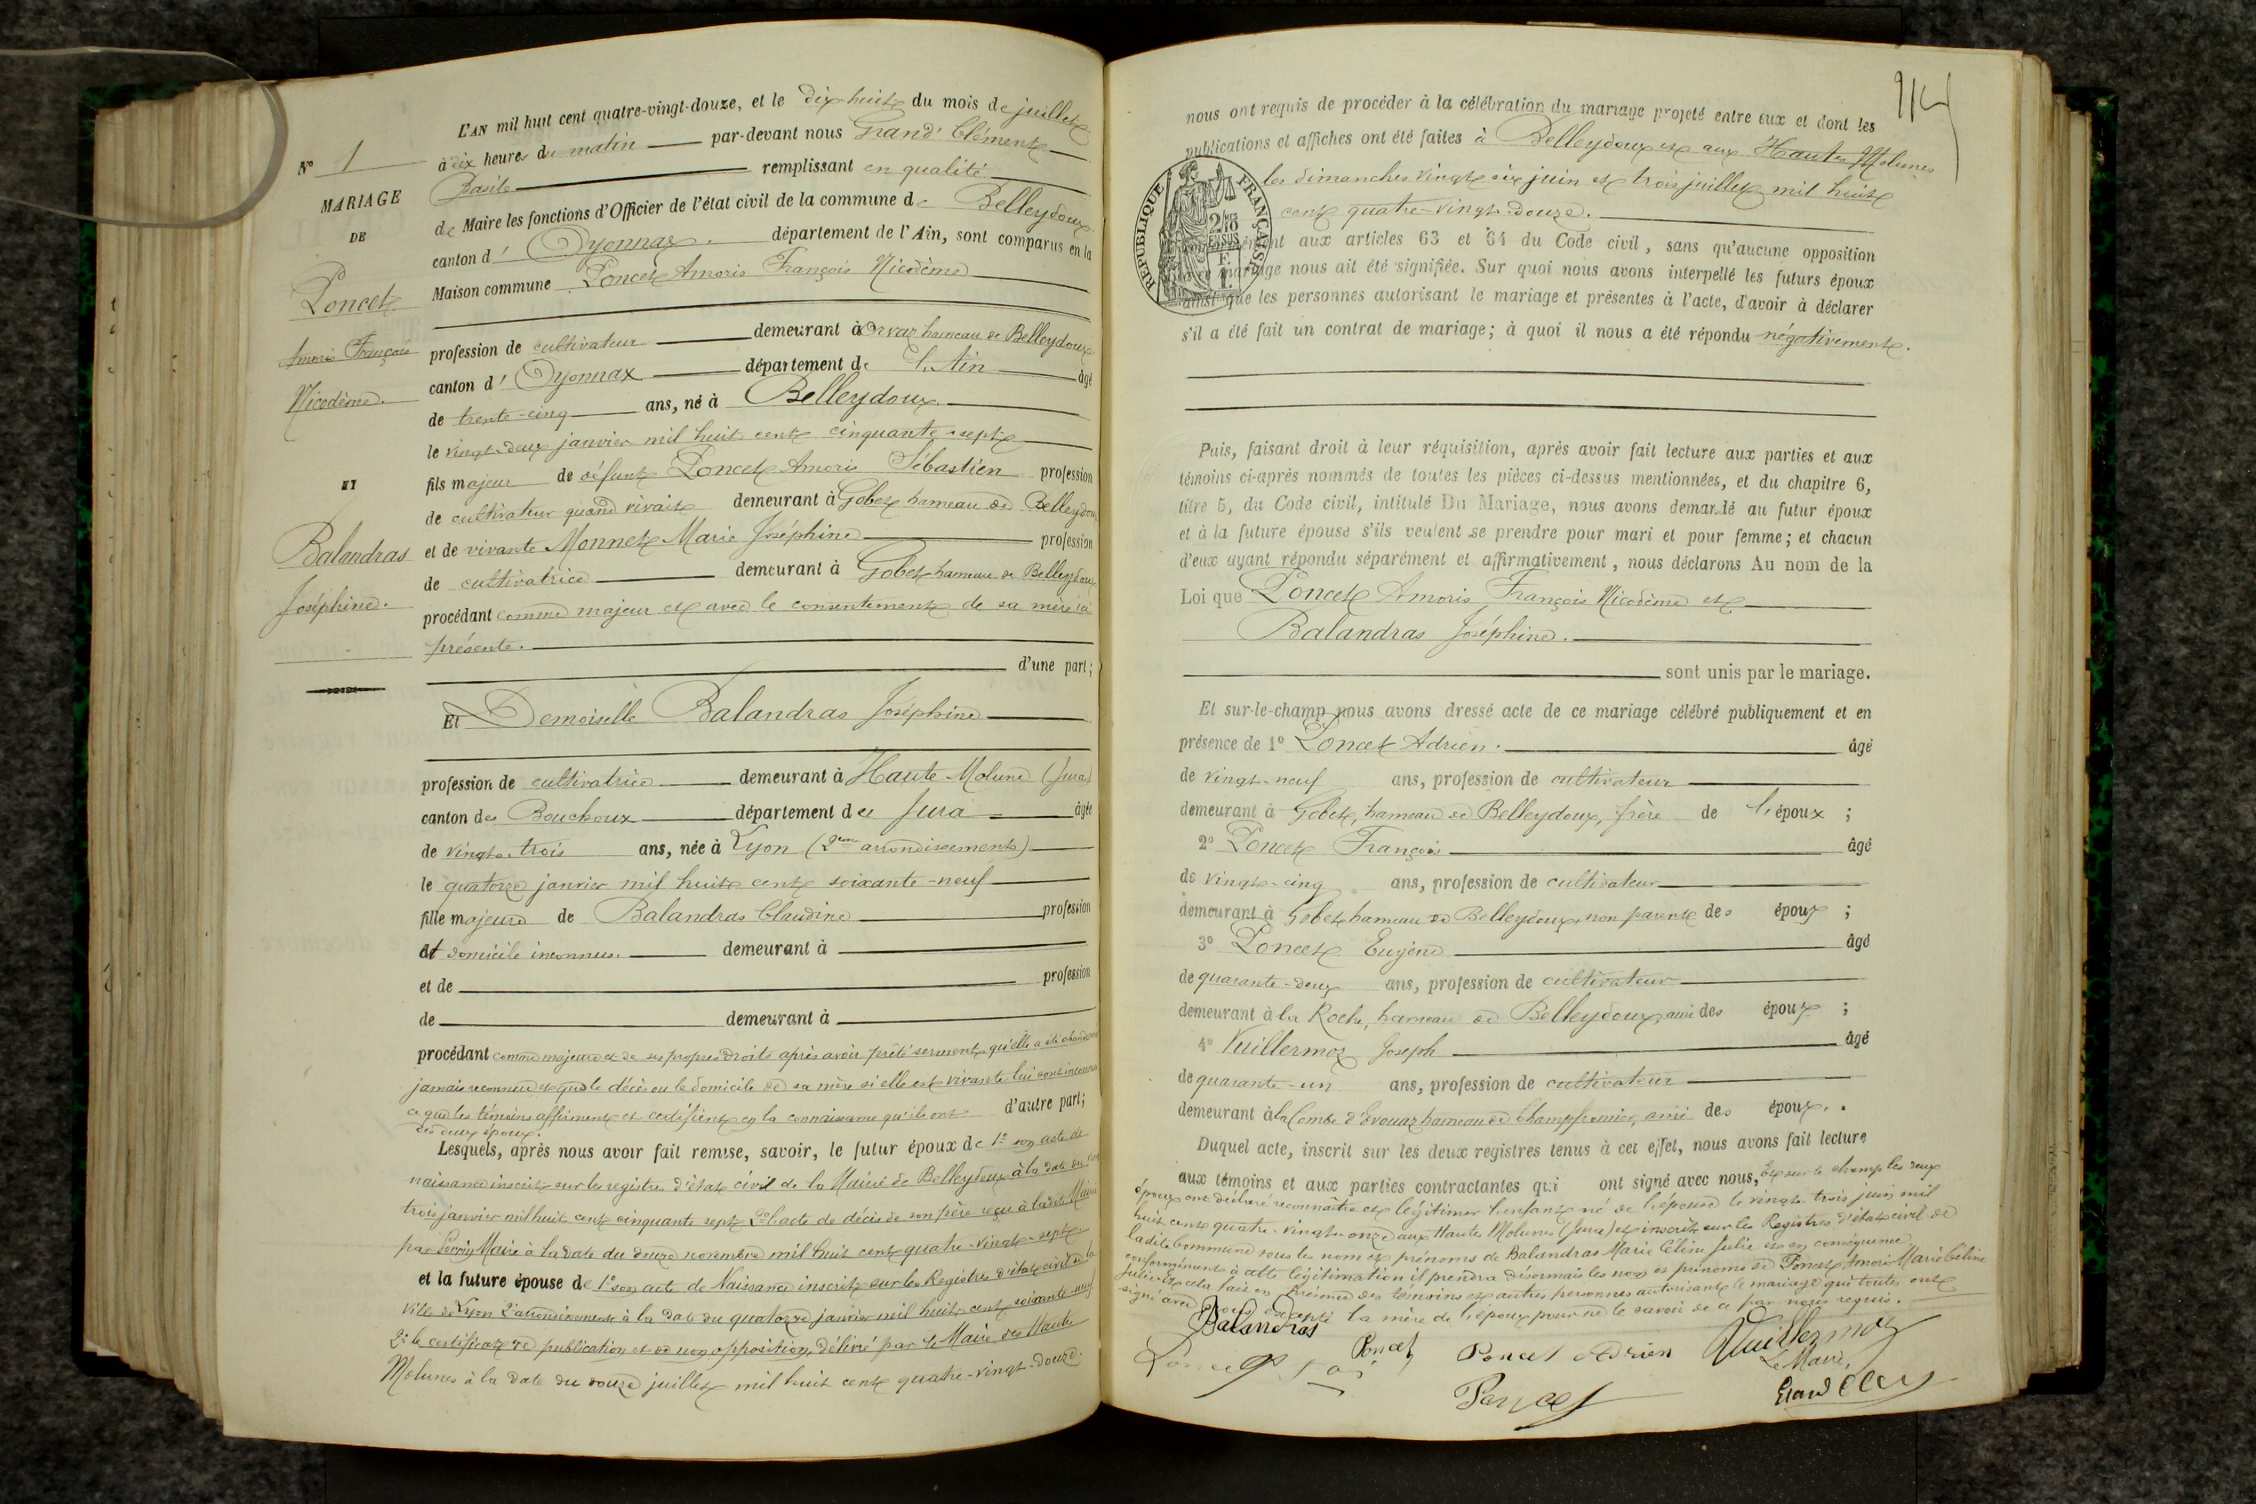 L'AN mil huit cent quatre-vingt-douze, et le dix-huit du mois de juillet
à dix heures du matin par-devant nous Grand Clément
Basile remplissant en qualité
de Maire les fonctions d'Officier de l'état civil de la commune de Belleydoux
canton d'Oyonnax département de l'Ain, sont comparus en la
Maison commune Poncet Amoris François Nicodème
profession de cultivateur demeurant à Orvaz hameau de Belleydoux
canton d'Oyonnax département de l'Ain âgé
de trente-cinq ans, né à Belleydoux
le vingt-deux janvier mil huit cent cinquante-sept
fils majeur de défunt Poncet Amoris Sébastien profession
de cultivateur quand vivait demeurant à Gobet hameau de Belleydoux
et de vivante Monnet Marie Joséphine profession
de cultivatrice demeurant à Gobet hameau de Belleydoux
procédant comme majeur et avec le consentement de sa mère ici
présente.
d'une part;
Nº 1
MARIAGE
DE
Poncet
Amoris François
Nicodème.
ET
Balandras
Joséphine.
Et Demoiselle Balandras Joséphine
profession de cultivatrice demeurant à Haute-Molune (Jura)
canton des Bouchoux département du Jura âgée
de vingt-trois ans, née à Lyon (2eme arrondissement)
le quatorze janvier mil huit cent soixante-neuf
fille majeure de Balandras Claudine profession
et domicile inconnus. demeurant à
et de profession
de demeurant à
procédant comme majeure et de ses propres droits après avoir prêté serment qu'elle a été
jamais reconnue et que le décès ou le domicile de sa mère si elle est vivante lui sont inconnus
ce que les témoins affirment et certifient en la connaissance qu'ils ont d'autre part;
des deux époux.
Lesquels, après nous avoir fait remise, savoir, le futur époux de 1º son acte de
naissance inscrit sur les registres d'état civil de la Mairie de Belleydoux à la date du
trois janvier mil huit cent cinquante sept 2º l'acte de décès de son père reçu à ladite Mairie
par Maire à la date du douze novembre mil huit cent quatre-vingt-sept
et la future épouse de 1º son acte de Naissance inscrit sur les Registres d'état civil de la
Ville de Lyon 2e arrondissement à la date du quatorze janvier mil huit cent soixante-neuf
2º le certificat de publication et de non opposition, délivré par le Maire des Hautes
Molunes à la date du douze juillet mil huit cent quatre-vingt-douze.
nous ont requis de procéder à la célébration du mariage projeté entre eux et dont les
publications et affiches ont été faites à Belleydoux et aux Hautes Molunes
les dimanches vingt six juin et trois juillet mil huit
cent quatre-vingt-douze.
RÉPUBLIQUE FRANÇAISE
conformément aux articles 63 et 64 du Code civil, sans qu'aucune opposition
au mariage nous ait été signifiée. Sur quoi nous avons interpellé les futurs époux
ainsi que les personnes autorisant le mariage et présentes à l'acte, d'avoir à déclarer
s'il a été fait un contrat de mariage; à quoi il nous a été répondu négativement.
Puis, faisant droit à leur réquisition, après avoir fait lecture aux parties et aux
témoins ci-après nommés de toutes les pièces ci-dessus mentionnées, et du chapitre 6,
titre 5, du Code civil, intitulé Du Mariage, nous avons demandé au futur époux
et à la future épouse s'ils veulent se prendre pour mari et pour femme; et chacun
d'eux ayant répondu séparément et affirmativement, nous déclarons Au nom de la
Loi que Poncet Amoris François Nicodème et
Balandras Joséphine.
sont unis par le mariage.
Et sur-le-champ nous avons dressé acte de ce mariage célébré publiquement et en
présence de 1º Poncet Adrien. âgé
de vingt-neuf ans, profession de cultivateur
demeurant à Gobet, hameau de Belleydoux, frère de l'époux ;
2º Poncet François âgé
de vingt-cinq ans, profession de cultivateur
demeurant à Gobet hameau de Belleydoux, non parent des époux ;
3º Poncet Eugène âgé
de quarante-deux ans, profession de cultivateur
demeurant à la Roche, hameau de Belleydoux, ami des époux ;
4º Vuillermoz Joseph âgé
de quarante-un ans, profession de cultivateur
demeurant à la Combe d'Evouaz hameau de Champfromier, ami des époux.
Duquel acte, inscrit sur les deux registres tenus à cet effet, nous avons fait lecture
aux témoins et aux parties contractantes qui ont signé avec nous, Et sur le champ les deux
époux ont déclaré reconnaître et légitimer l'enfant né de l'épouse le vingt-trois juin mil
huit cent quatre-vingt-onze aux Hautes Molunes (Jura) et inscrit sur les Registres d'état civil de
ladite Commune sous les nom et prénoms de Balandras Marie Céline Julie et en conséquence
conformément à cette légitimation il prendra désormais les nom et prénoms de Poncet Amoris Marie Céline
Julie. Et cela fait en Présence des témoins et autres personnes autorisant le mariage qui toutes ont
signé avec nous excepté la mère de l'époux pour ne le savoir de ce par nous requis.
Balandras
Poncet
Poncet Adrien
Vuillermoz
Le Maire,
Poncet
Grand Clém